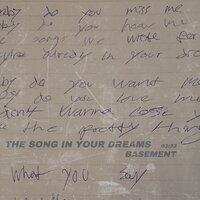 baby do you miss me
baby do you hear me
songs we wrote for
in your dre
baby do you want me
do you love me
don't wanna lose y
the pretty thing
THE SONG IN YOUR DREAMS 03:23
BASEMENT
what you say